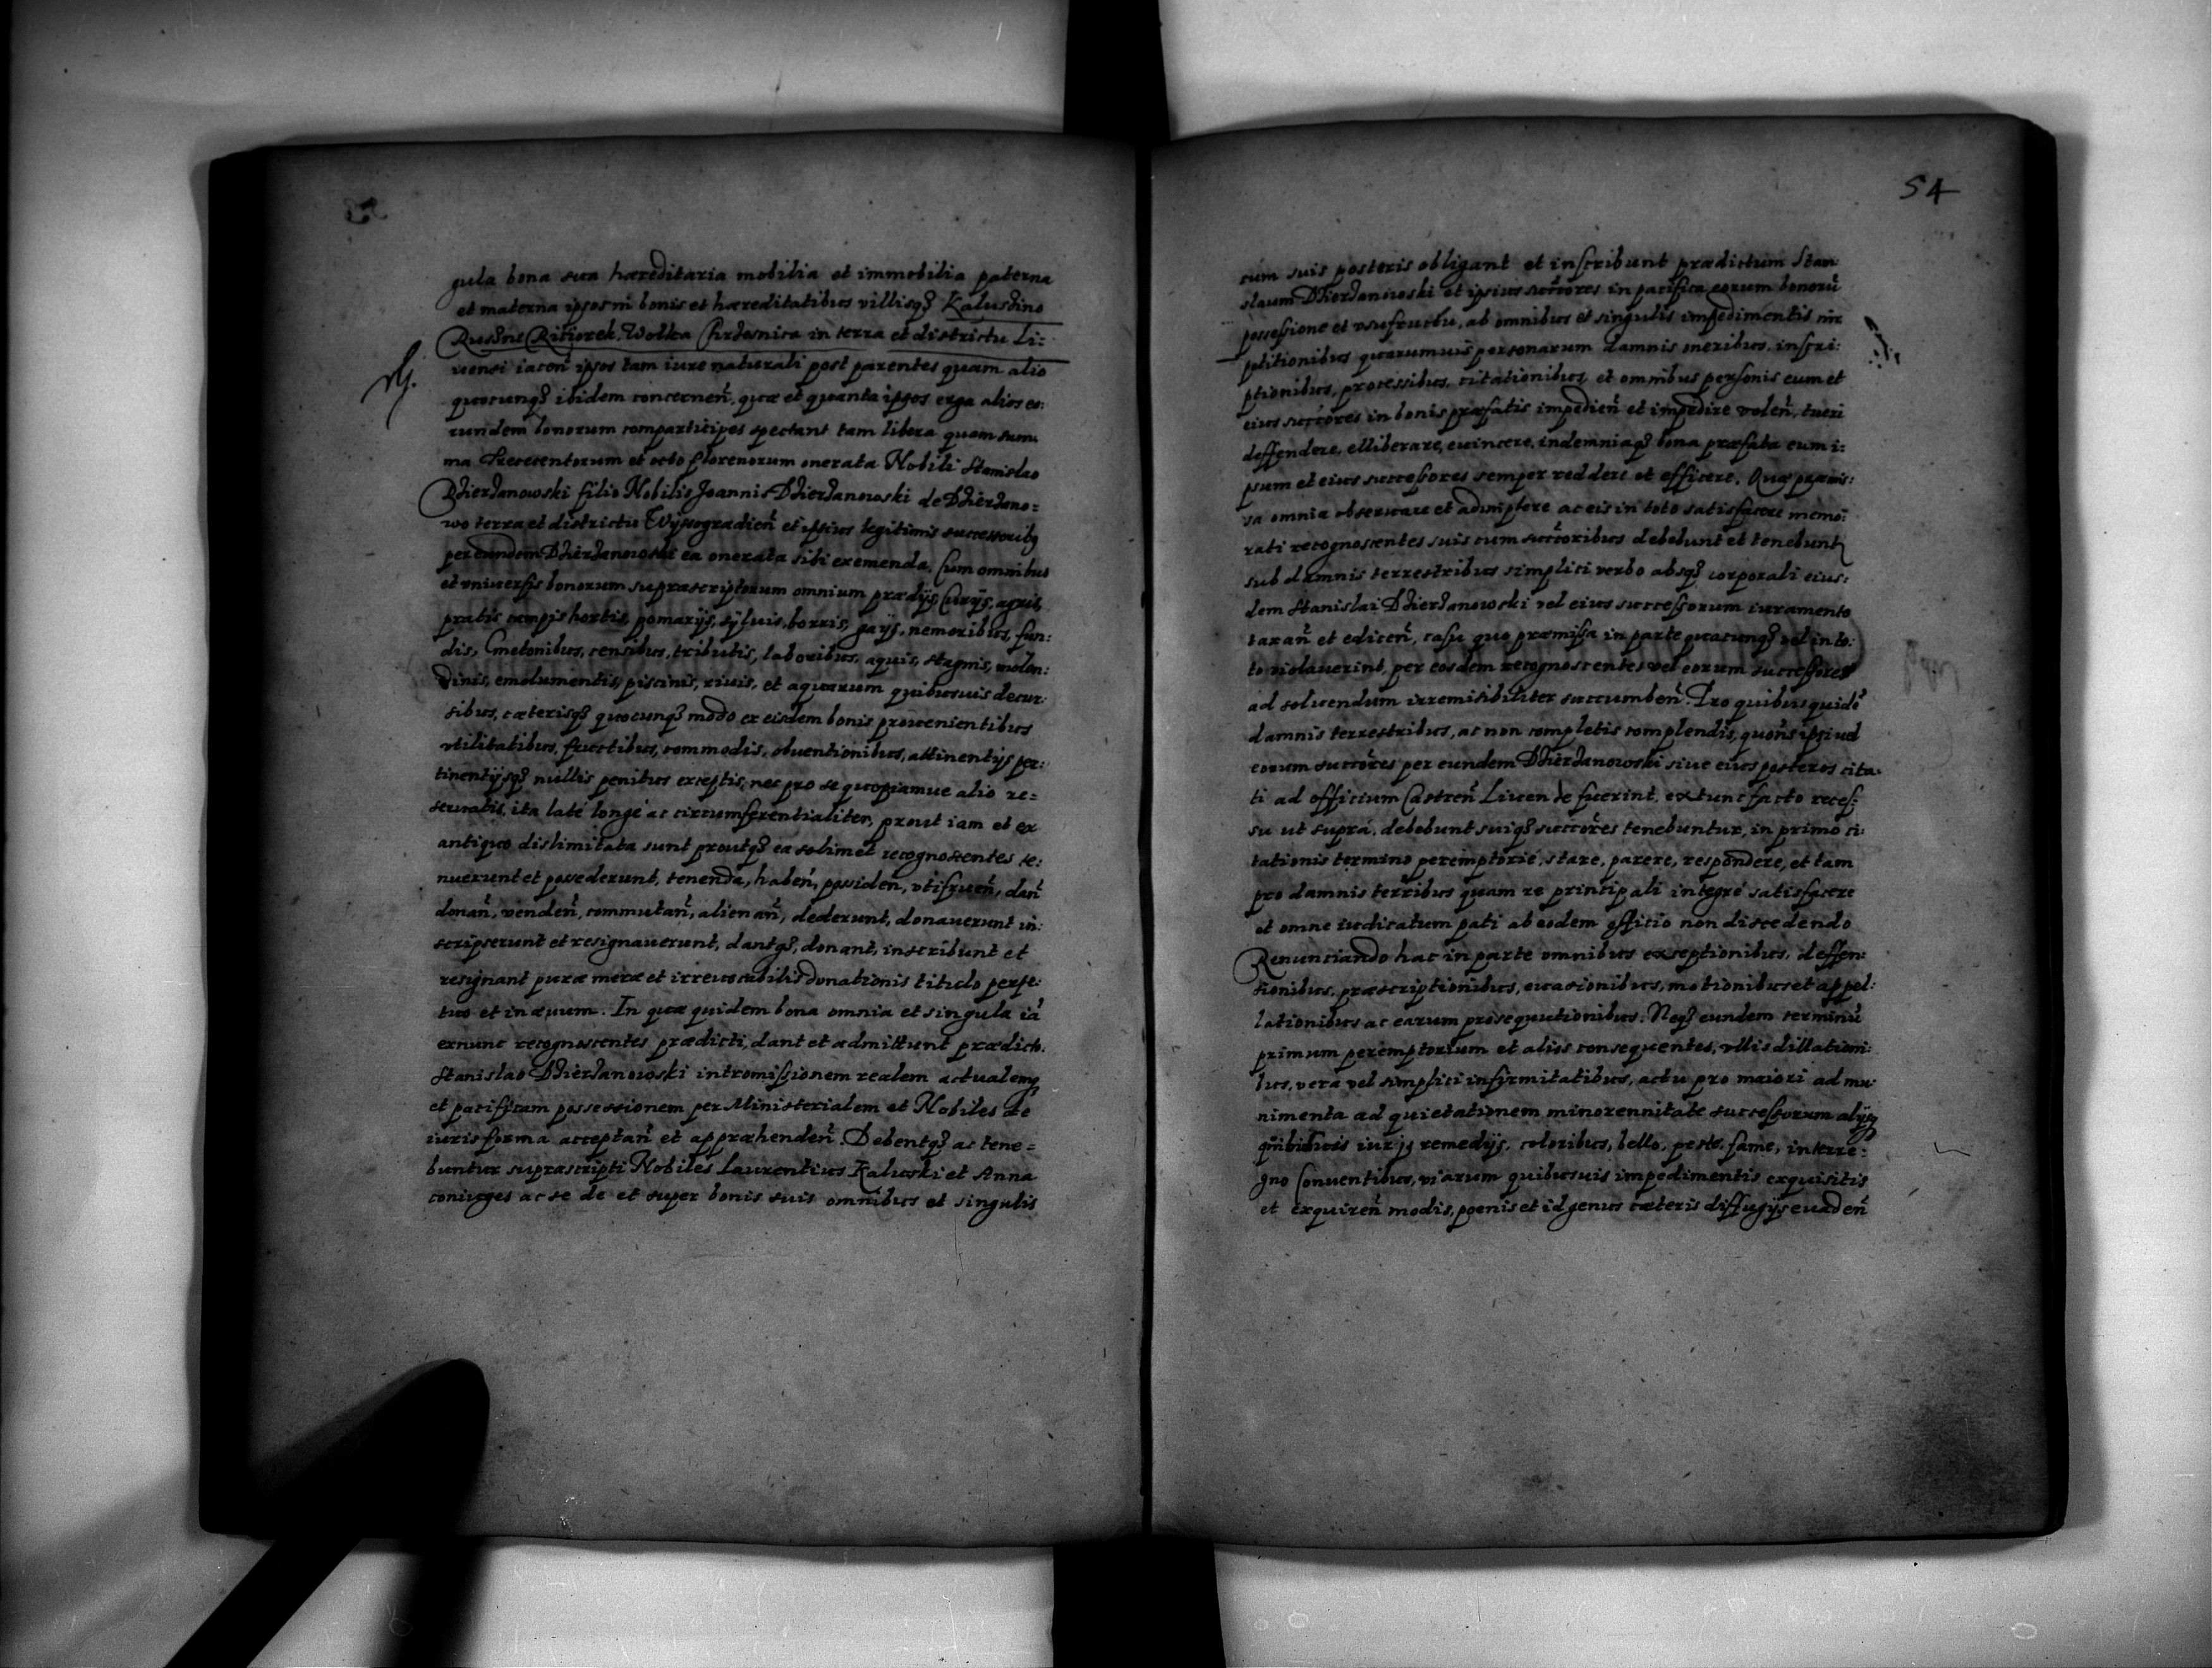 gula bona sua hæreditaria mobilia et immobilia paterna
et materna ipsos in bonis et hæreditatibus villisqȝ Kałuszino
Ruszne Wolka in terra et districtu Li:
uensi iaceñ ipsos tam iure naturali post parentes quam alio
quocunqȝ ibidem concerneñ, quæ et quanta ipsos erga alios eo:
rundem bonorum comparticipes spectant tam libera quam sum
ma Trecentorum et octo florenorum onerata Nobili Stanislao
Dzierzanowski filio Nobilis Joannis Dzierzanowski de Dzierzano=
wo terra et districtu Wyssogradieñ et ipsius legitimis successoribȝ
per eundem Dzierzanowski ea onerata sibi exemenda. Cum omnibus
et vniuersis bonorum supræscriptorum omnium prædijs, Curijs, agris,
pratis campis hortis, pomarijs, syluis, borris, gaijs, nemoribus, fun:
dis, Cmetonibus, censibus, tributis, laboribus, aquis, stagnis, molen:
dinis, emolumentis, piscinis, riuis, et aquarum quibusuis decur:
sibus, cæterisqȝ quocunqȝ modo ex eisdem bonis prouenientibus
vtilitatibus, fructibus, commodis, obuentionibus, attinentijs per:
tinentijsqȝ nullis penitus exceptis, nec pro se quopiamue alio re=
seruatis, ita laté longé ac circumferentialiter, prout iam et ex
antiquo dislimitata sunt proutqȝ ea solimet recognoscentes te:
nuerunt et possederunt, tenenda, habeñ, possideñ, vtifrueñ, dañ
donañ, vendeñ, commutañ, alienañ, dederunt, donauerunt in:
scripserunt et resignauerunt, dantqȝ, donant, inscribunt et
resignant puræ meræ et irreuocabilis donationis titulo perpe:
tuo et in æuum. In quæ quidem bona omnia et singula iã
exnunc recognoscentes prædicti, dant et admittunt prædicto
Stanislao Dzierzanowski intromissionem realem actualemqȝ
et pacificam possessionem per Ministerialem et Nobiles de
iuris forma acceptañ et appræhendeñ. Debentqȝ ac tene=
buntur suprascripti Nobiles Laurentius Kaluski et Anna
coniuges ac se de et super bonis suis omnibus et singulis
54
cum suis posteris obligant et inscribunt prædictum Stani
slaum Dzierzanowski et ipsius succ̃ores in pacifica eorum bonorũ
possessione et vsufructu, ab omnibus et singulis impedimentis im
petitionibus quarumuis personarum damnis meribus, inscri:
ptionibus, processibus, citationibus et omnibus personis eum et
eius succ̃ores in bonis præfatis impedieñ et impedire voleñ, tueri
deffendere, elliberare, euincere, indemniaqȝ bona præfata eum i:
psum et eius successores semper reddere et efficere. Quæ præmis:
sa omnia obseruare et adimplere ac eis in toto satisfacere memo:
rati recognoscentes suis cum succ̃oribus debebunt et tenebunt̃
sub damnis terrestribus simplici verbo absqȝ corporali eius:
dem Stanislai Dzierzanowski vel eius successorum iuramento
taxañ et ediceñ, casu quo præmissa in parte quacunqȝ vel in to:
to violauerint, per eosdem recognoscentes vel eorum successores
ad soluendum irremisibiliter succumbeñ. Pro quibus quidẽ
damnis terrestribus, ac non completis complendis, quoñs ipsi vel
eorum succ̃ores per eundem Dzierzanowski siue eius posteros cita
ti ad officium Castreñ Liuen̄ de fuerint, extunc facto reces:
su ut supra, debebunt suiqȝ succ̃ores tenebuntur, in primo ci:
tationis termino peremptorié, stare, parere, respondere, et tam
pro damnis terr̃ibus quam re principali integré satisfacere
et omne iudicatum pati ab eodem officio non discedendo
Renunciando hac in parte omnibus exceptionibus, deffen:
sionibus, præscriptionibus, euasionibus, motionibus et appel:
lationibus ac earum prosequutionibus. Neqȝ eundem terminũ
primum peremptorium et alios consequentes, vllis dillationi:
bus, vera vel simplici infirmitatibus, actu pro maiori ad mu
nimenta ad quietationem minorennitate successorum alijsqȝ
quibusuis iuris remedijs, coloribus, bello, peste, fame, interre:
gno Conuentibus, viarum quibusuis impedimentis exquisitis
et exquireñ modis, poenis et id genus cæteris diffugijs euadeñ